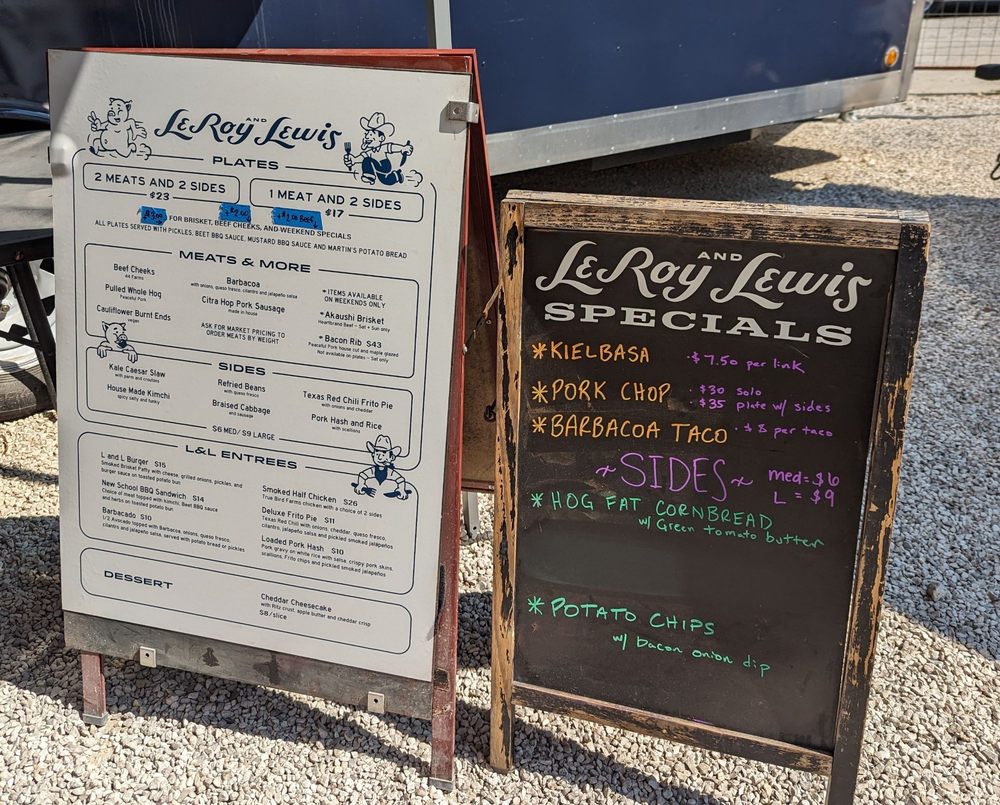 LeRoy AND Lewis
PLATES
2 MEATS AND 2 SIDES
$23
1 MEAT AND 2 SIDES
$17
$3.00 +$2.00 +$2.00 Beef
FOR BRISKET, BEEF CHEEKS, AND WEEKEND SPECIALS
ALL PLATES SERVED WITH PICKLES, BEET BBQ SAUCE, MUSTARD BBQ SAUCE AND MARTIN'S POTATO BREAD
MEATS & MORE
Beef Cheeks
44 Farms
Pulled Whole Hog
Peaceful Pork
Cauliflower Burnt Ends
vegan
Barbacoa
with onions, queso fresco, cilantro and jalapeño salsa
Citra Hop Pork Sausage
made in house
ASK FOR MARKET PRICING TO
ORDER MEATS BY WEIGHT
* ITEMS AVAILABLE
ON WEEKENDS ONLY
* Akaushi Brisket
Heartbrand Beef - Sat + Sun only
* Bacon Rib $43
Peaceful Pork house cut and maple glazed
Not available on plates - Sat only
SIDES
Kale Caesar Slaw
with parm and croutons
House Made Kimchi
spicy salty and funky
Refried Beans
with queso fresco
Braised Cabbage
and sausage
Texas Red Chili Frito Pie
with onions and cheddar
Pork Hash and Rice
with scallions
$6 MED/ $9 LARGE
L&L ENTREES
L and L Burger $15
Smoked Brisket Patty with cheese, grilled onions, pickles, and
burger sauce on toasted potato bun
New School BBQ Sandwich $14
Choice of meat topped with kimchi, Beet BBQ sauce
and herbs on toasted potato bun
Barbacado $10
1/2 Avocado topped with Barbacoa, onions, queso fresco,
cilantro and jalapeño salsa, served with potato bread or pickles
Smoked Half Chicken $26
True Bird Farms chicken with a choice of 2 sides
Deluxe Frito Pie $11
Texas Red Chili with onions, cheddar, queso fresco,
cilantro, jalapeño salsa and pickled smoked jalapeños
Loaded Pork Hash $10
Pork gravy on white rice with salsa, crispy pork skins,
scallions, Frito chips and pickled smoked jalapeños
DESSERT
Cheddar Cheesecake
with Ritz crust, apple butter and cheddar crisp
$8/slice
LeRoy AND Lewis
SPECIALS
*KIELBASA · $7.50 per link
*PORK CHOP · $30 solo
· $35 plate w/ sides
*BARBACOA TACO · $8 per taco
~SIDES~ med=$6
L = $9
* HOG FAT CORNBREAD
w/ Green tomato butter
*POTATO CHIPS
w/ bacon onion dip